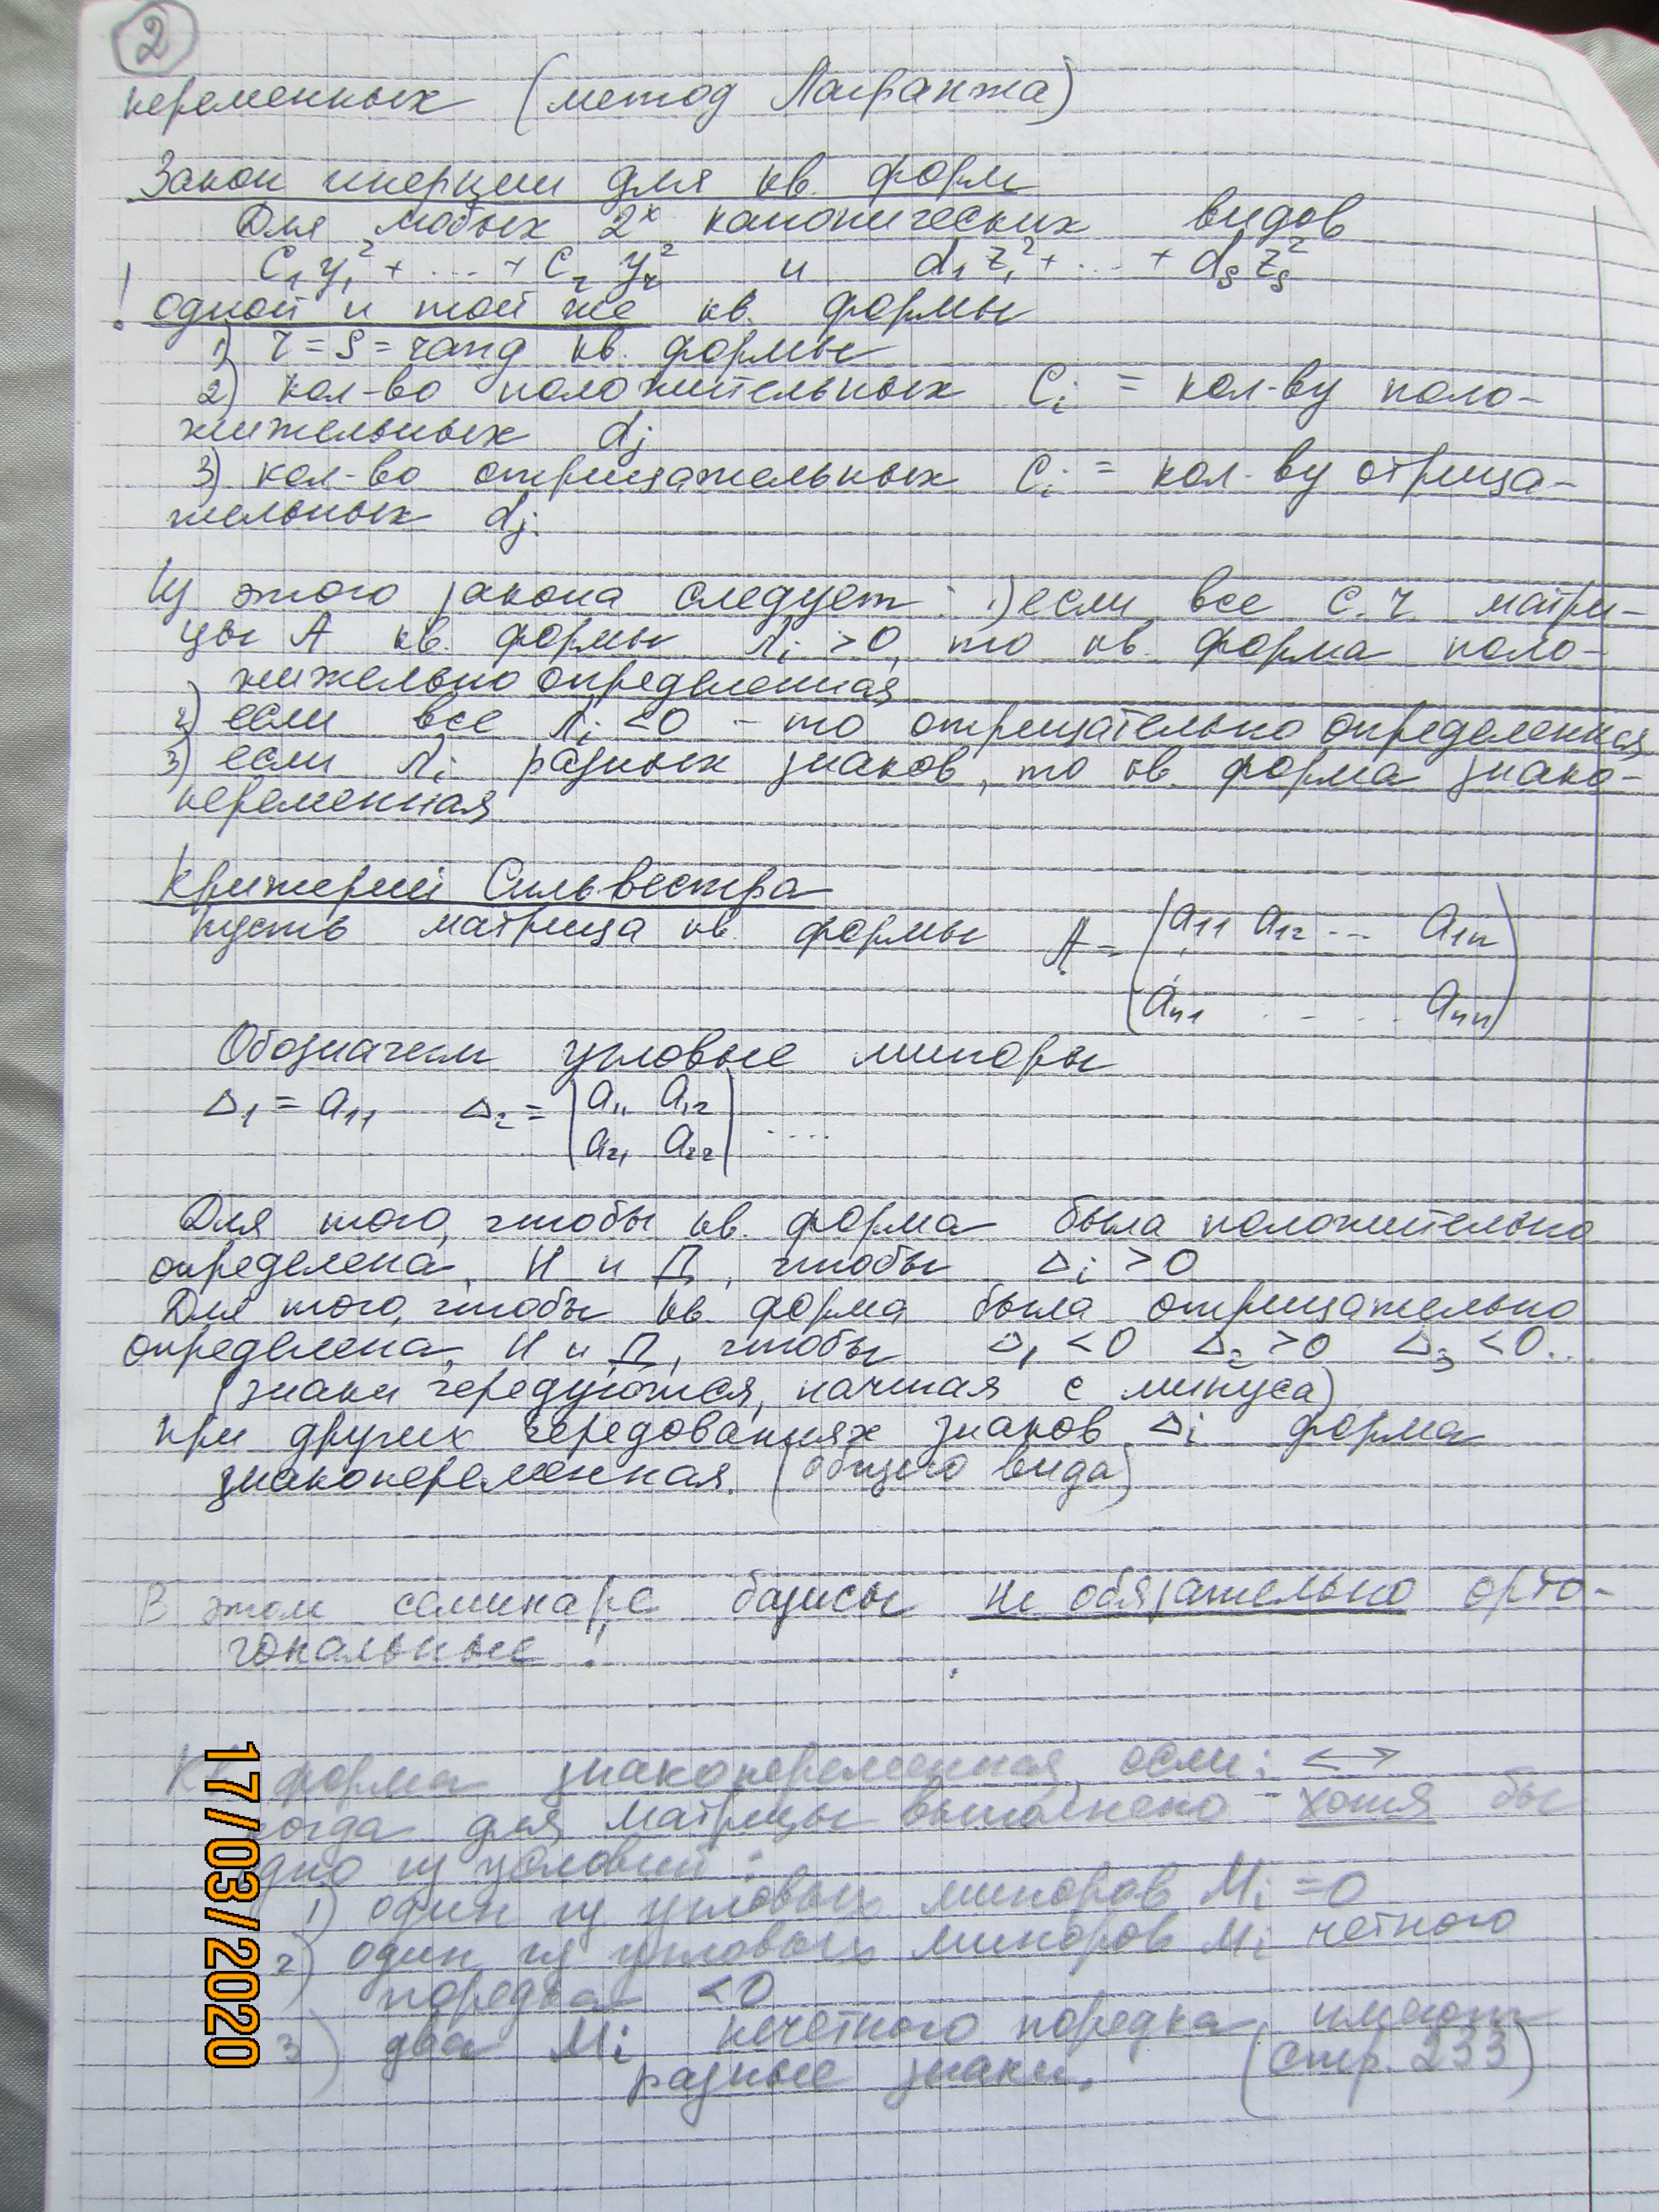 2
переменных (метод Лагранжа)
Закон инерции для кв. форм
Для любых 2х канонических видов
C₁y₁² + .... + Cᵣ yᵣ² и d₁z₁² + ... + dₛzₛ²
! одной и той же кв. формы
1) r = s = rang кв. формы
2) кол-во положительных Cᵢ = кол-ву поло-
жительных dⱼ
3) кол-во отрицательных Cᵢ = кол-ву отрица-
тельных dⱼ.
Из этого закона следует: 1) если все с.ч. матри-
цы A кв. формы λᵢ > 0, то кв. форма поло-
жительно определенная
2) если все λᵢ < 0 - то отрицательно определенная
3) если λᵢ разных знаков, то кв. форма знако-
переменная
Критерий Сильвестра
Пусть матрица кв. формы A = (a₁₁ a₁₂ ... a₁ₙ
aₙ₁ . . . . aₙₙ)
Обозначим угловые миноры
Δ₁ = a₁₁ Δ₂ = |a₁₁ a₁₂
a₂₁ a₂₂| ....
Для того, чтобы кв. форма была положительно
определена, Н и Д, чтобы Δᵢ > 0
Для того, чтобы кв. форма была отрицательно
определена, Н и Д, чтобы Δ₁ < 0 Δ₂ > 0 Δ₃ < 0...
(знаки чередуются, начиная с минуса)
При других чередованиях знаков Δᵢ форма
знакопеременная. (общего вида)
В этом семинаре базисы не обязательно орто-
гональные!
Кв форма знакопеременная, если: ⟷
когда для матрицы выполнено - хотя бы
одно из условий:
1) один из угловых миноров Mᵢ = 0
2) один из угловых миноров Mᵢ четного
порядка < 0
3) два Mᵢ нечетного порядка, имеют
разные знаки. (стр. 233)
17/03/2020